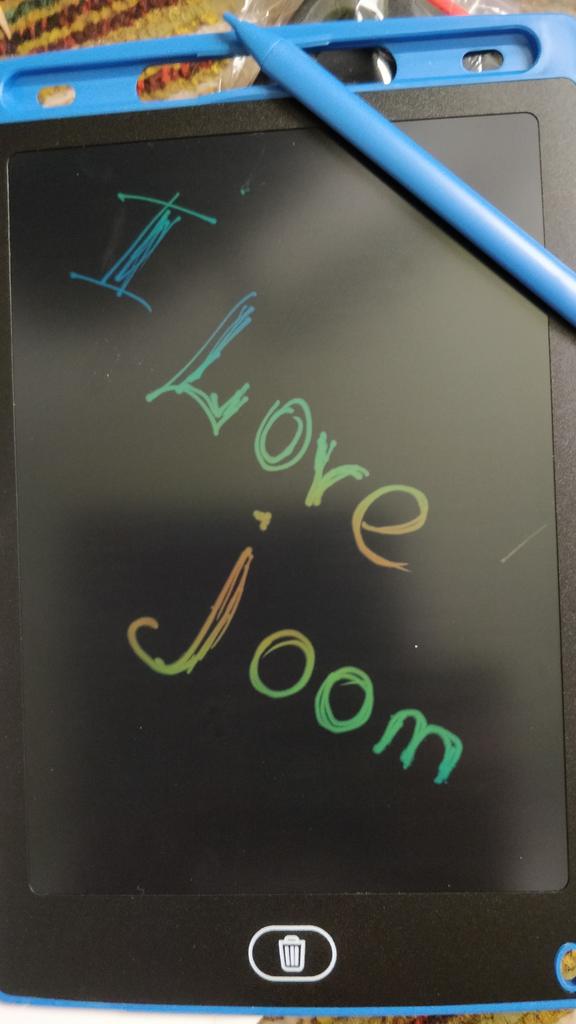 I
Love
joom